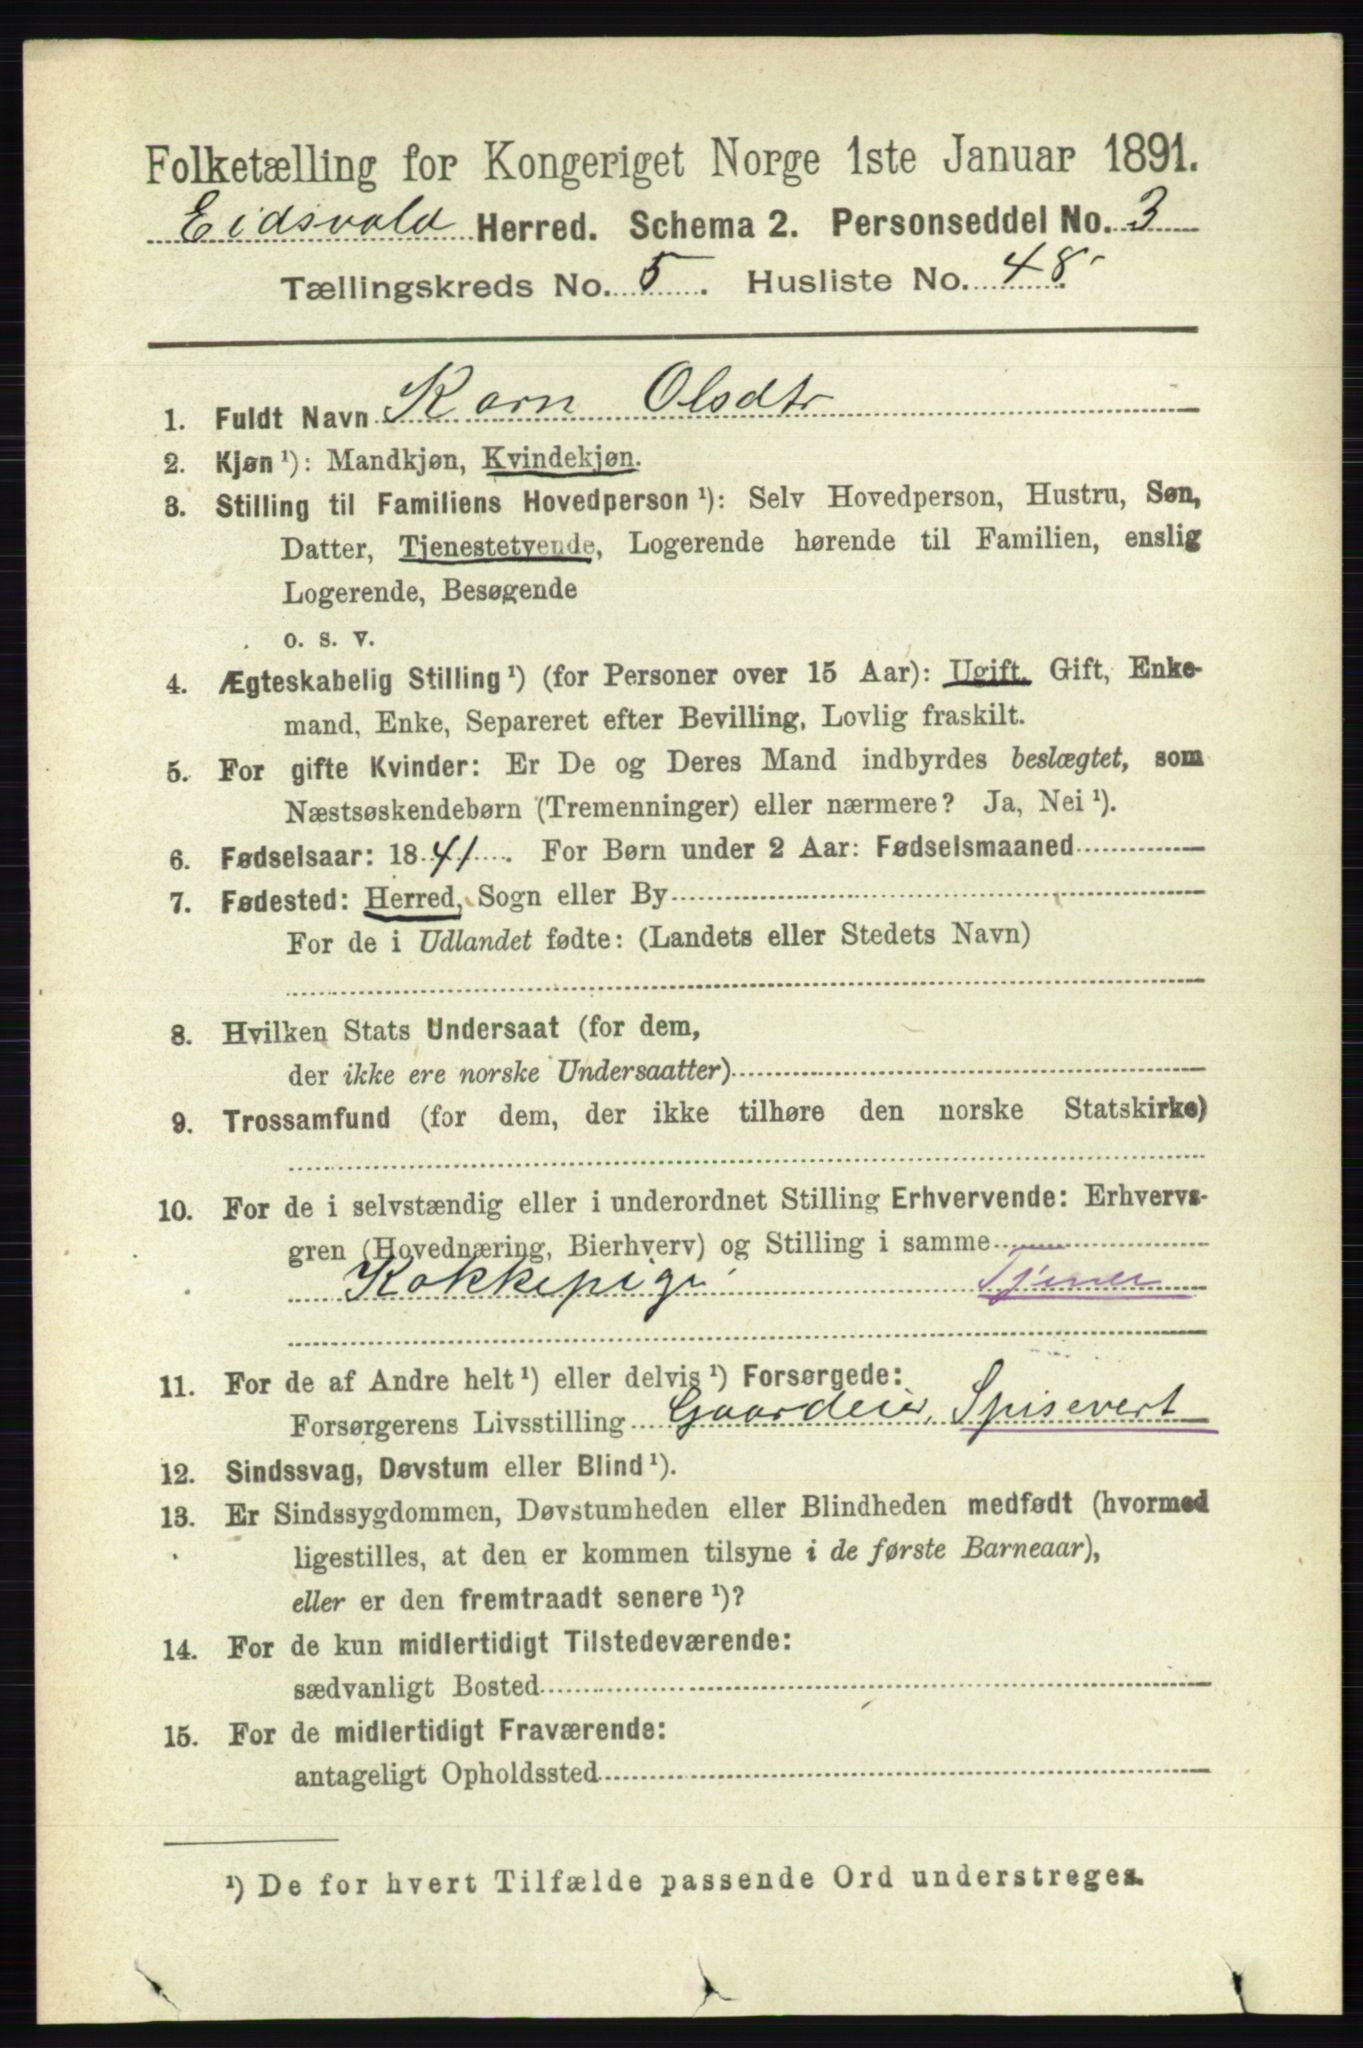 Folketælling for Kongeriget Norge 1ste Januar 1891.
Eidsvold Herred. Schema 2. Personseddel No. 3
Tællingskreds No. 5. Husliste No. 48
1. Fuldt Navn Karn Olsdtr
2. Kjøn¹): Mandkjøn, Kvindekjøn.
3. Stilling til Familiens Hovedperson¹): Selv Hovedperson, Hustru, Søn,
Datter, Tjenestetyende, Logerende hørende til Familien, enslig
Logerende, Besøgende
o. s. v.
4. Ægteskabelig Stilling¹) (for Personer over 15 Aar): Ugift, Gift, Enke-
mand, Enke, Separeret efter Bevilling, Lovlig fraskilt.
5. For gifte Kvinder: Er De og Deres Mand indbyrdes beslægtet, som
Næstsøskendebørn (Tremenninger) eller nærmere? Ja, Nei¹).
6. Fødselsaar: 1841. For Børn under 2 Aar: Fødselsmaaned
7. Fødested: Herred, Sogn eller By
For de i Udlandet fødte: (Landets eller Stedets Navn)
8. Hvilken Stats Undersaat (for dem,
der ikke ere norske Undersaatter)
9. Trossamfund (for dem, der ikke tilhøre den norske Statskirke)
10. For de i selvstændig eller i underordnet Stilling Erhvervende: Erhvervs-
gren (Hovednæring, Bierhverv) og Stilling i samme
Kokkepige Tjener
11. For de af Andre helt¹) eller delvis¹) Forsørgede:
Forsørgerens Livsstilling Gaardeier, Spisevert
12. Sindssvag, Døvstum eller Blind¹).
13. Er Sindssygdommen, Døvstumheden eller Blindheden medfødt (hvormed
ligestilles, at den er kommen tilsyne i de første Barneaar),
eller er den fremtraadt senere¹)?
14. For de kun midlertidigt Tilstedeværende:
sædvanligt Bosted
15. For de midlertidigt Fraværende:
antageligt Opholdssted
¹) De for hvert Tilfælde passende Ord understreges.